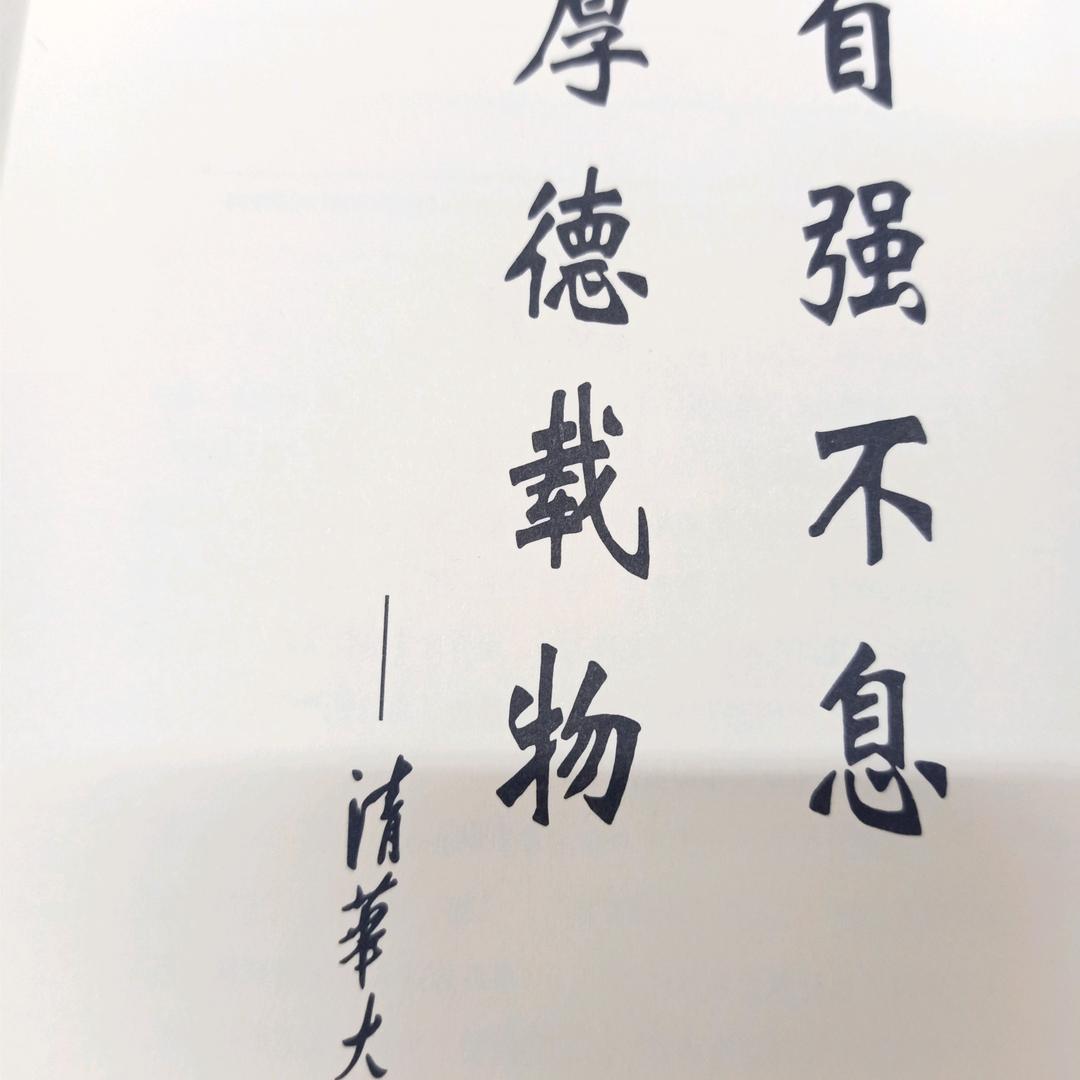 自强不息
厚德载物
——清華大